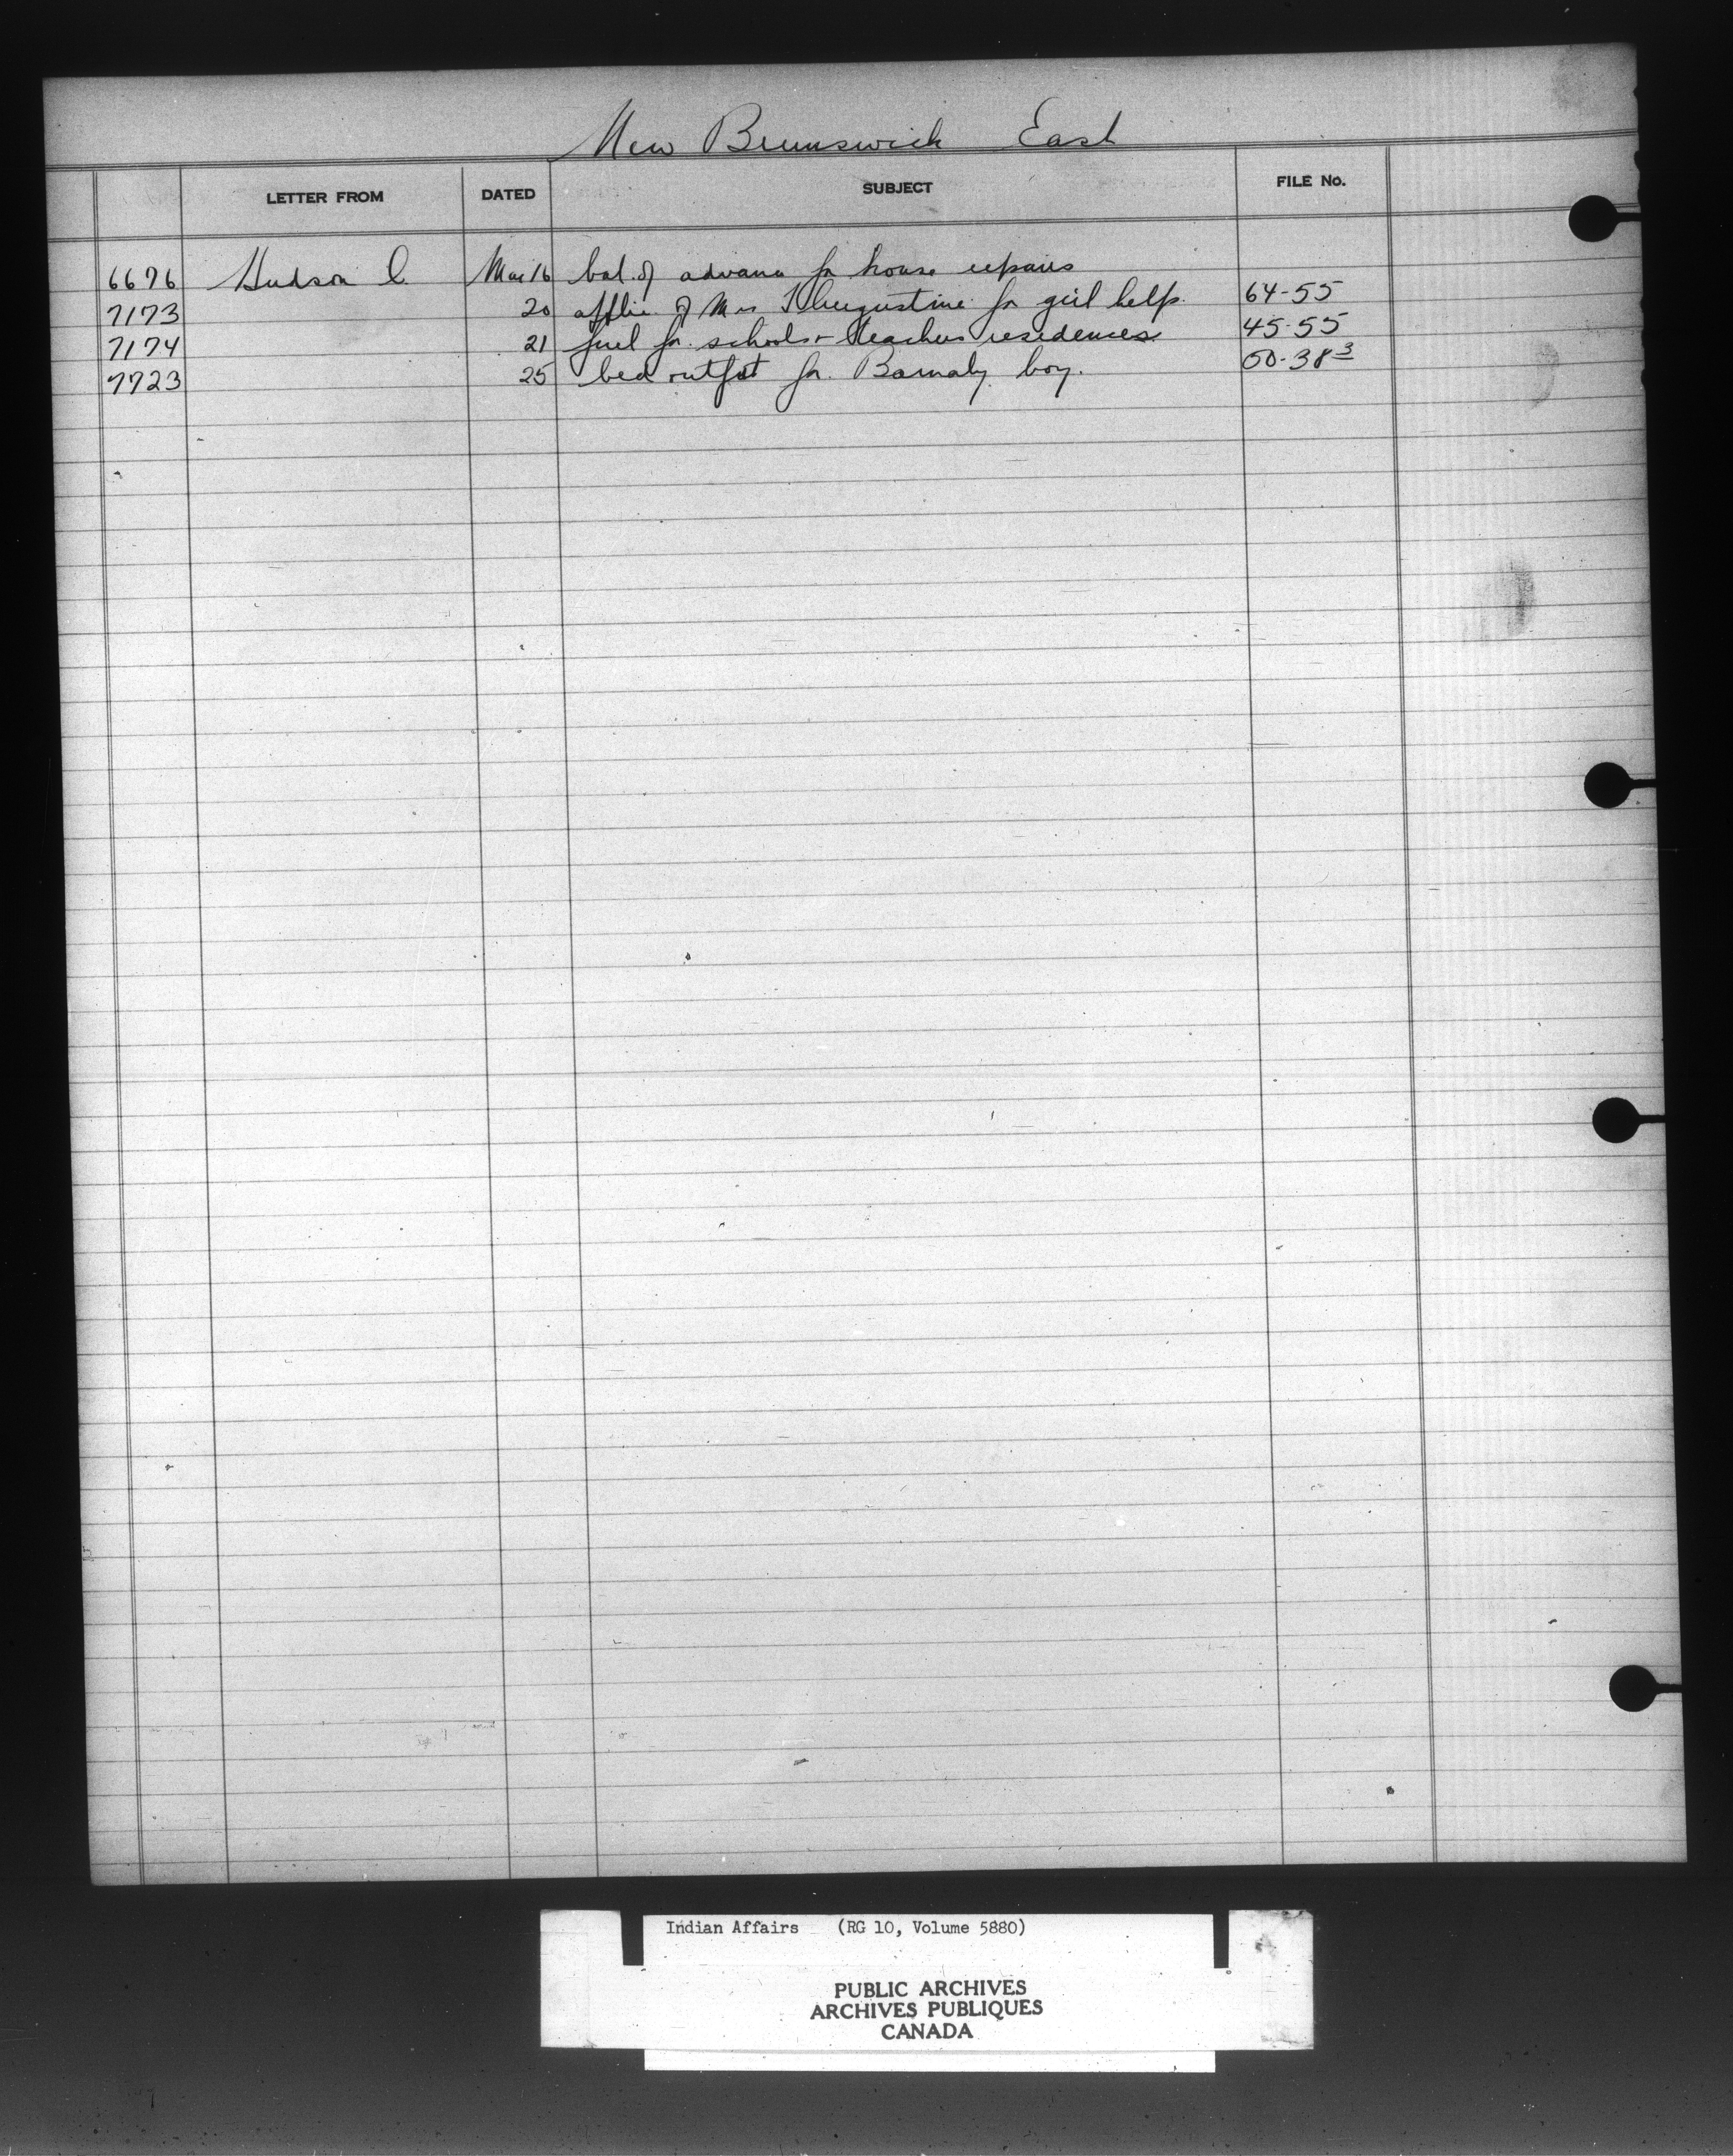 New Brunswick East
LETTER FROM DATED SUBJECT FILE No.
6676 Hudson C. Mar 16 bal. of advance for house repairs
7173 20 applic. of Mrs T Augustine for girl help. 64-55
7174 21 fuel for schools + teachers residences 45-55
7723 25 bed outfit for Barnaby boy. 50-38 3
Indian Affairs (RG 10, Volume 5880)
PUBLIC ARCHIVES
ARCHIVES PUBLIQUES
CANADA